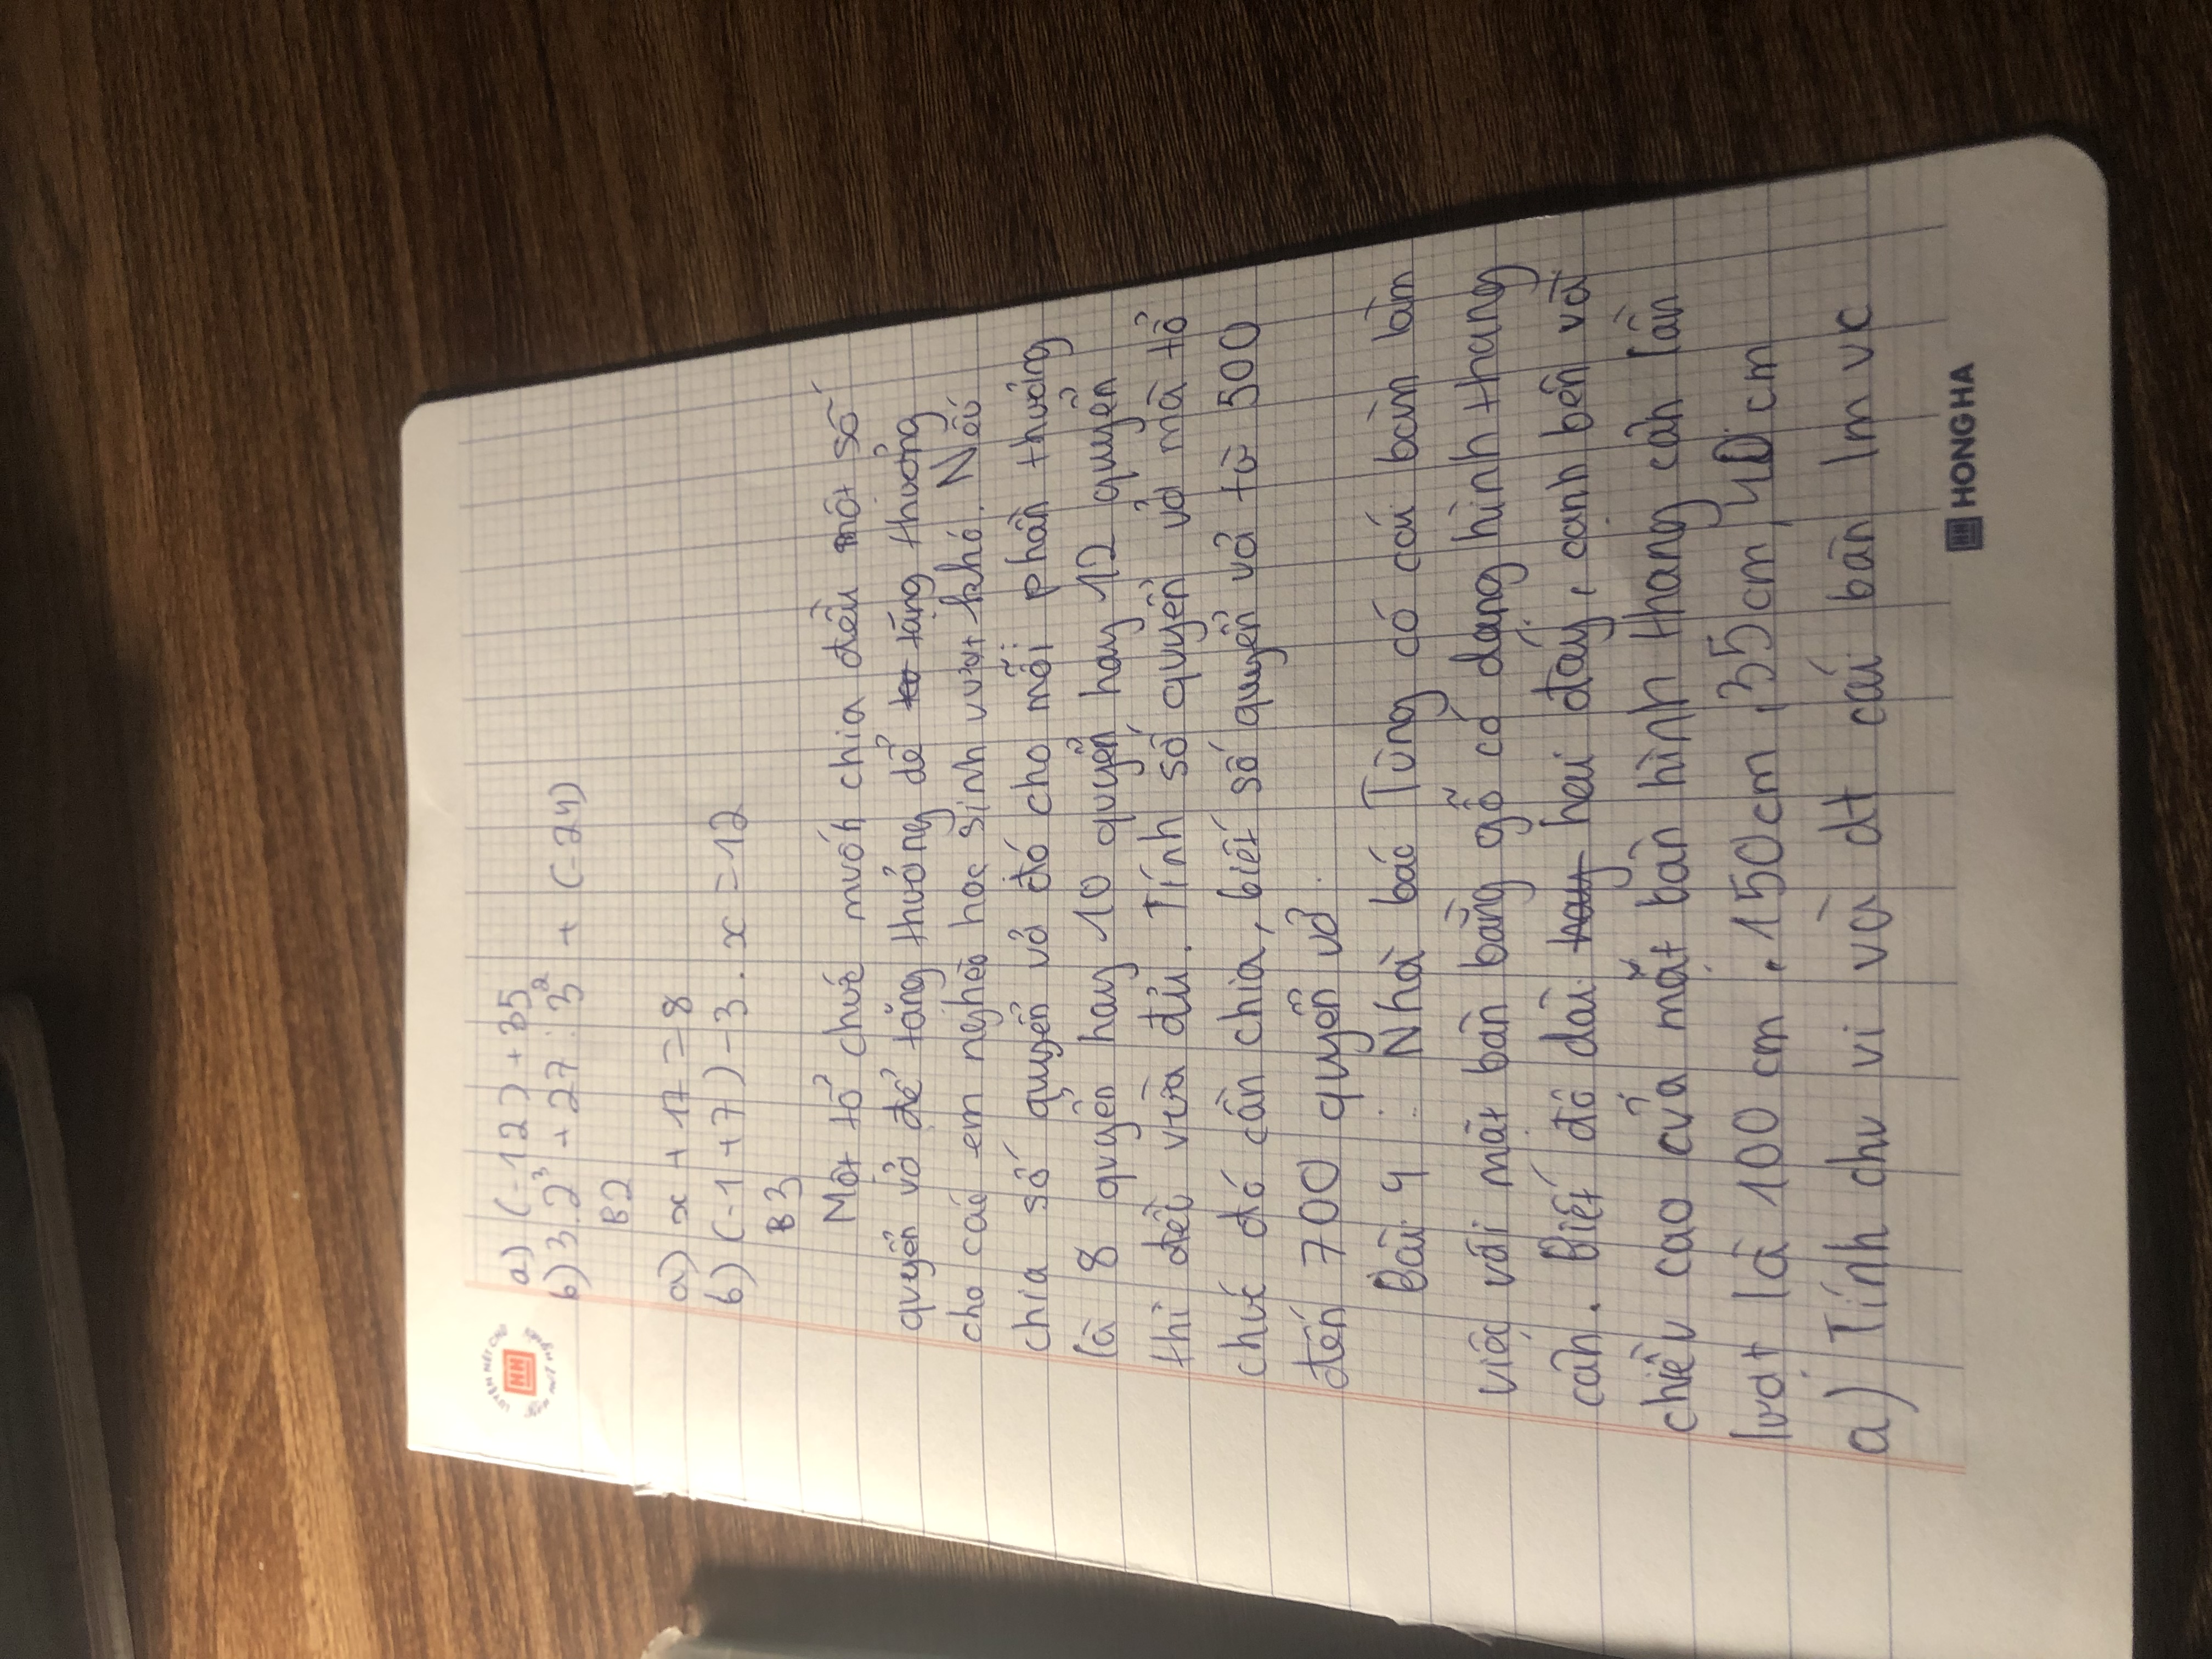 a) (-12) + 35
b) 3.2³ + 27 : 3² + (-24)
B2
a) x + 17 = 8
b) (-1 + 7) - 3 . x = 12
B3
Một tổ chức muốn chia đều một số
quyển vở để tặng thưởng để tặng thưởng
cho các em nghèo học sinh vượt khó. Nếu
chia số quyển vở đó cho mỗi phần thưởng
là 8 quyển hay 10 quyển hay 12 quyển
thì đều vừa đủ. Tính số quyển vở mà tổ
chức đó cần chia, biết số quyển vở từ 500
đến 700 quyển vở.
Bài 4 : Nhà bác Tùng có cái bàn làm
việc với mặt bàn bằng gỗ có dạng hình thang
cân. Biết độ dài hai đáy, cạnh bên và
chiều cao của mặt bàn hình thang cân lần
lượt là 100 cm, 150cm, 35cm, 40 cm
a) Tính chu vi và dt cái bàn lm vc
HONG HA